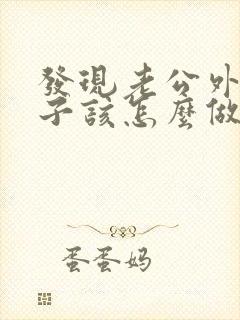 發現老公外
子該怎麼做
蛋蛋妈